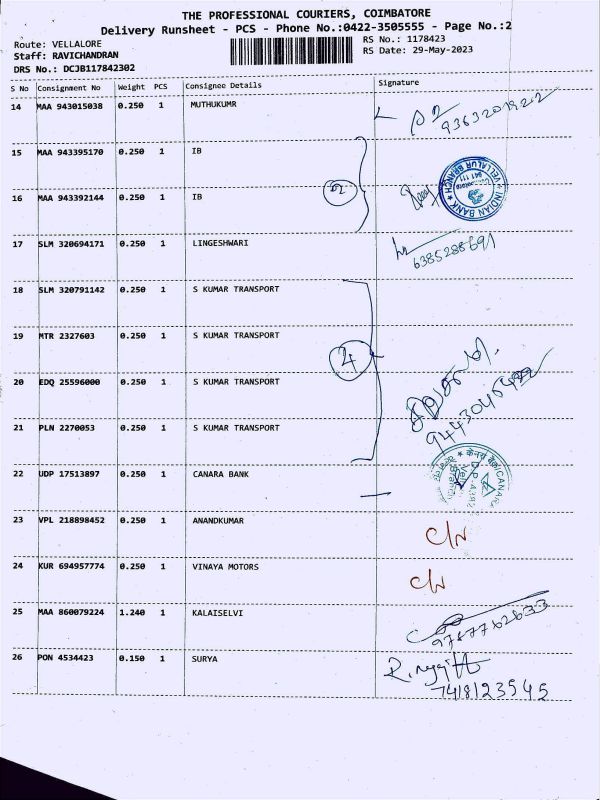 THE PROFESSIONAL COURIERS, COIMBATORE
Delivery Runsheet - PCS - Phone No.:0422-3505555 - Page No.:2
Route: VELLALORE
RS No.: 1178423
Staff: RAVICHANDRAN
RS Date: 29-May-2023
DRS No.: DCJB117842302
S No Consignment No Weight PCS Consignee Details Signature
14 MAA 943015038 0.250 1 MUTHUKUMR
9363201922
15 MAA 943395170 0.250 1 IB
2
INDIAN BANK VELLALUR BRANCH 641 111
16 MAA 943392144 0.250 1 IB
17 SLM 320694171 0.250 1 LINGESHWARI
6385288691
18 SLM 320791142 0.250 1 S KUMAR TRANSPORT
19 MTR 2327603 0.250 1 S KUMAR TRANSPORT
4
20 EDQ 25596000 0.250 1 S KUMAR TRANSPORT
21 PLN 2270053 0.250 1 S KUMAR TRANSPORT
22 UDP 17513897 0.250 1 CANARA BANK
CANARA
23 VPL 218898452 0.250 1 ANANDKUMAR
C/N
24 KUR 694957774 0.250 1 VINAYA MOTORS
C/N
25 MAA 860079224 1.240 1 KALAISELVI
9787762633
26 PON 4534423 0.150 1 SURYA
7418123545